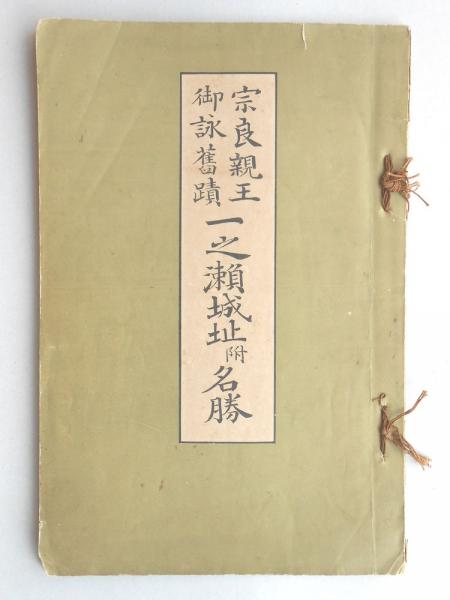 宗良親王
御詠舊蹟
一之瀬城址附名勝